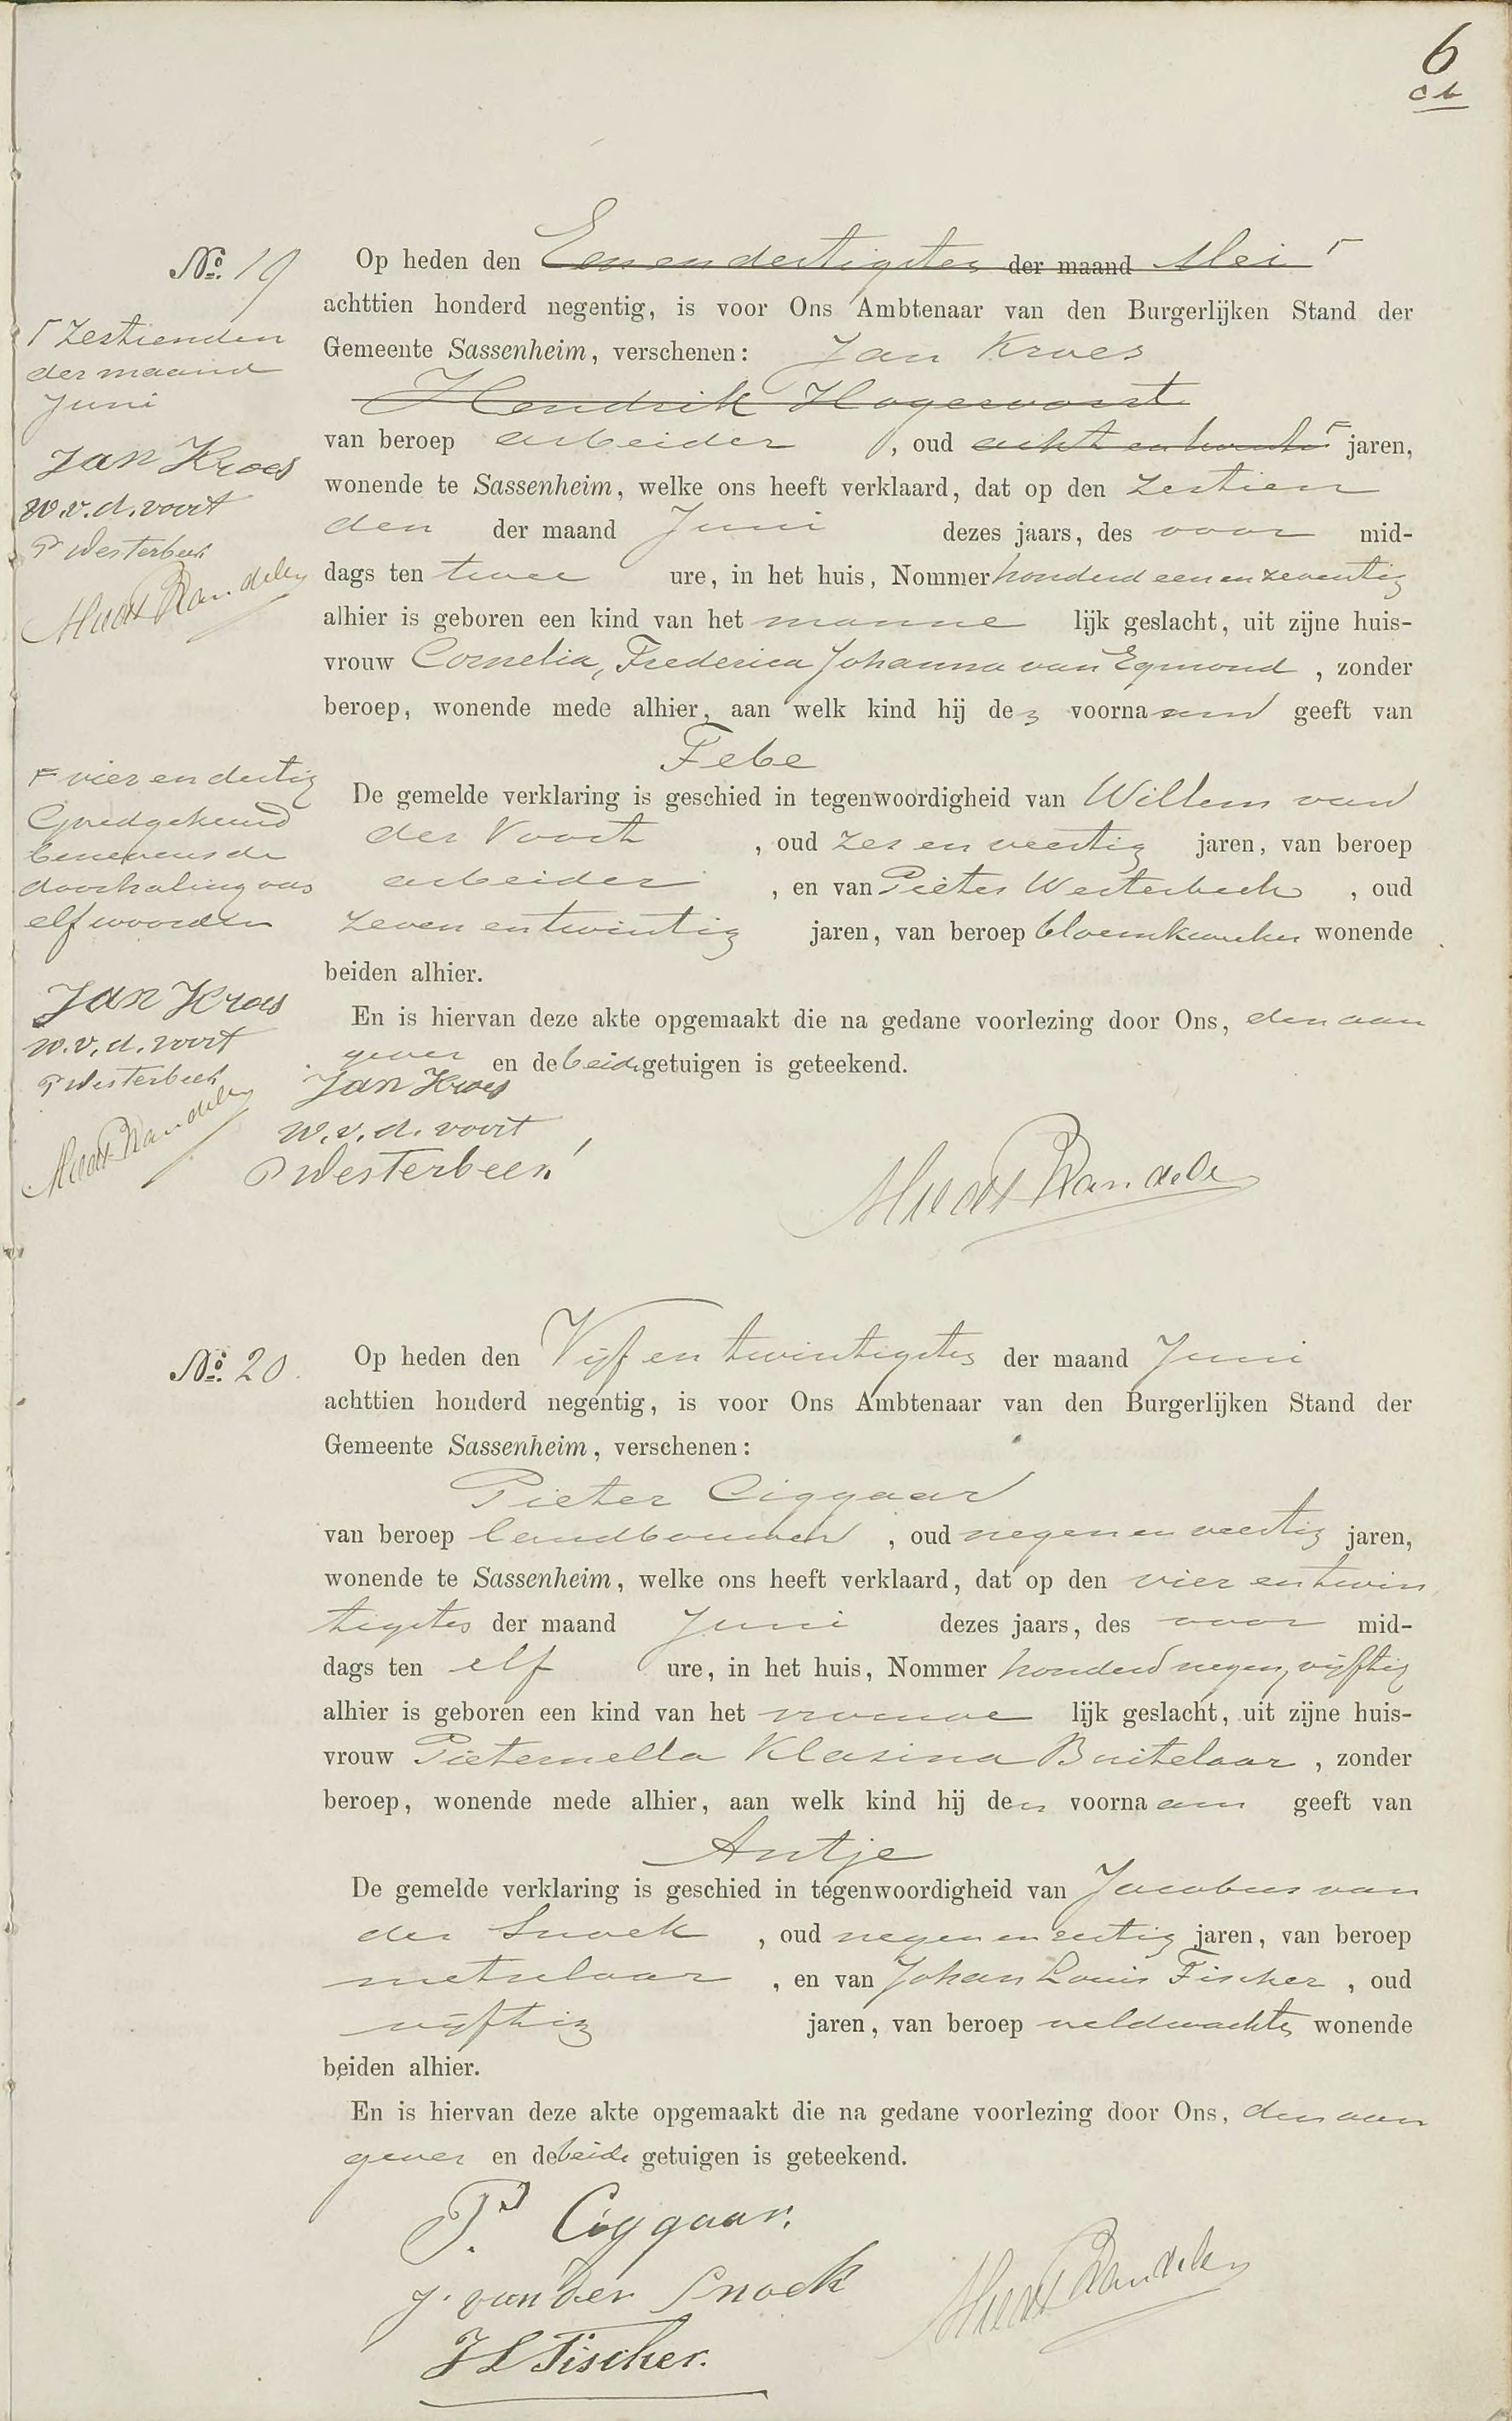 6
No. 19
Op heden den Een en dertigsten der maand Mei
achttien honderd negentig, is voor Ons Ambtenaar van den Burgerlijken Stand der
Gemeente Sassenheim, verschenen: Jan Kroes
Hendrik Hogervorst
van beroep arbeider, oud acht en twintig jaren,
wonende te Sassenheim, welke ons heeft verklaard, dat op den zestien
den der maand Juni dezes jaars, des voor mid-
dags ten twee ure, in het huis, Nommer honderd een en zeventig
alhier is geboren een kind van het manne lijk geslacht, uit zijne huis-
vrouw Cornelia, Frederica Johanna van Egmond, zonder
beroep, wonende mede alhier, aan welk kind hij den voornaam geeft van
Febe
De gemelde verklaring is geschied in tegenwoordigheid van Willem van
der Voort, oud zes en veertig jaren, van beroep
arbeider, en van Pieter Westerbeek, oud
zeven en twintig jaren, van beroep bloemkweeker wonende
beiden alhier.
En is hiervan deze akte opgemaakt die na gedane voorlezing door Ons, den aan
gever en de beide getuigen is geteekend.
Jan Kroes
W. v. d. voort
P Westerbeek
zestienden
der maand
Juni
Jan Kroes
W. v. d. voort
P Westerbeek
vier en dertig
Goedgekeurd
benevens de
doorhaling van
elf woorden
Jan Kroes
W. v. d. voort
P Westerbeek
No. 20.
Op heden den Vijf en twintigsten der maand Juni
achttien honderd negentig, is voor Ons Ambtenaar van den Burgerlijken Stand der
Gemeente Sassenheim, verschenen:
Pieter Ciggaar
van beroep landbouwer, oud negen en veertig jaren,
wonende te Sassenheim, welke ons heeft verklaard, dat op den vier en twin
tigsten der maand Juni dezes jaars, des voor mid-
dags ten elf ure, in het huis, Nommer honderd negen, vijftig
alhier is geboren een kind van het vrouwe lijk geslacht, uit zijne huis-
vrouw Pieternella Klasina Buitelaar, zonder
beroep, wonende mede alhier, aan welk kind hij den voornaam geeft van
Antje
De gemelde verklaring is geschied in tegenwoordigheid van Jacobus van
der Snoek, oud negen en jaren, van beroep
metselaar, en van Johan Louis Fischer, oud
vijftig jaren, van beroep veldwachter wonende
beiden alhier.
En is hiervan deze akte opgemaakt die na gedane voorlezing door Ons, den aan
gever en de beide getuigen is geteekend.
P. Ciggaar.
J. van der Snoek
J L Fischer.